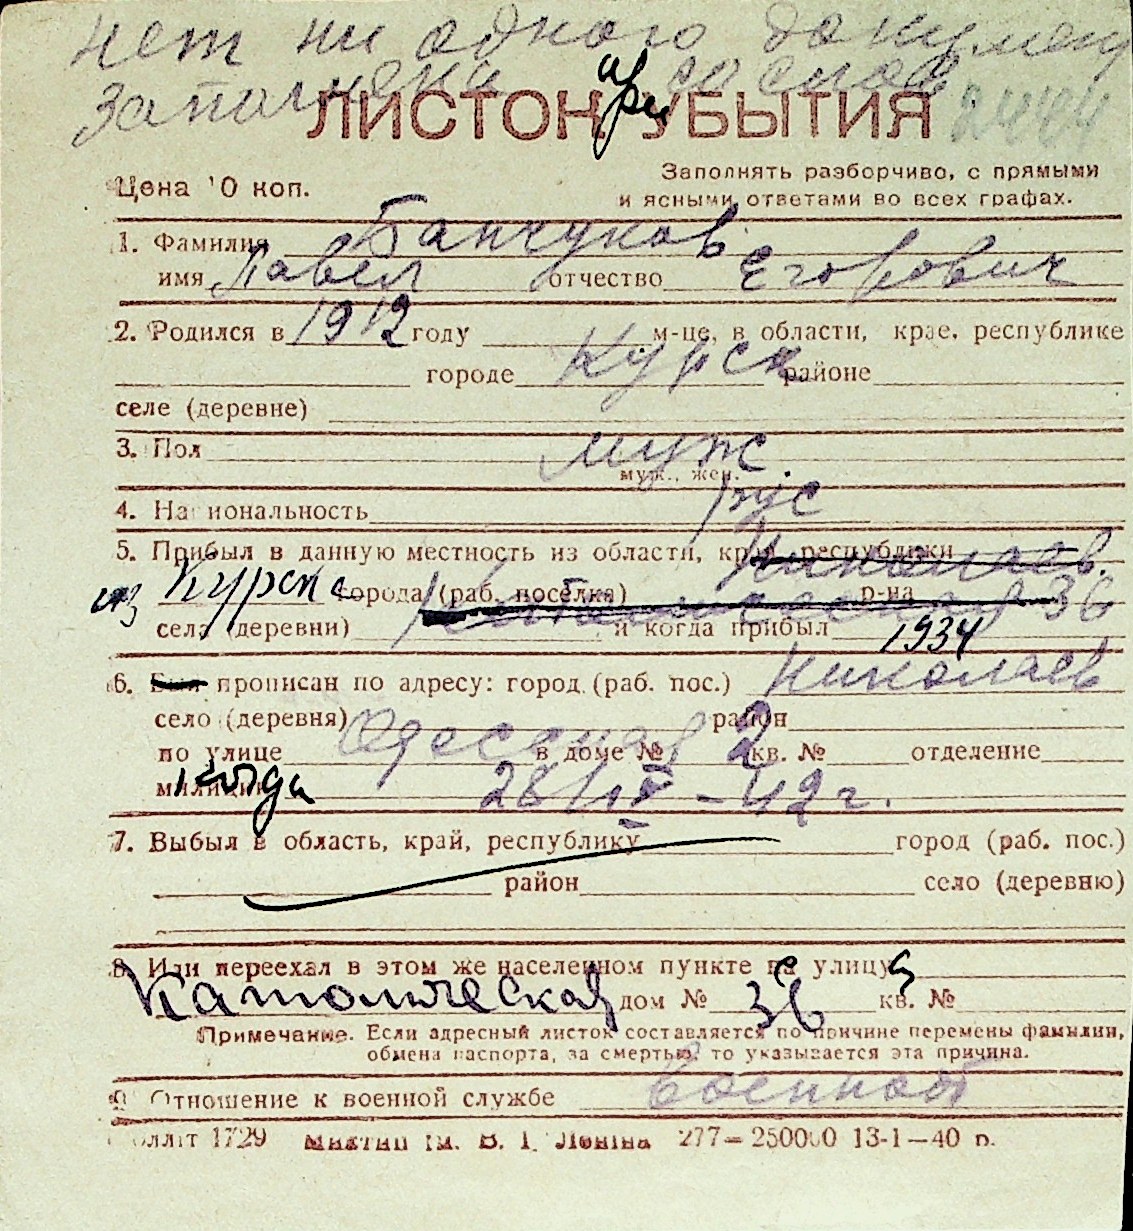 нет ни одного докумен
заполнена со слов
ЛИСТОК при УБЫТИЯ 2444
Цена 10 коп.
Заполнять разборчиво, с прямыми
и ясными ответами во всех графах.
1. Фамилия Банчуков
имя Павел отчество Егорович
2. Родился в 1912 году м-це, в области, крае, республике
городе Курск районе
селе (деревне)
3. Пол муж.
муж., жен.
4. Национальность рус
5. Прибыл в данную местность из области, края, республики Николаев.
из Курска города (раб. поселка) р-на 36
села (деревни) и когда прибыл 1934
6. Был прописан по адресу: город (раб. пос.) Николаев
село (деревня) район
по улице Одесская в доме № 2 кв. № отделение
милиции когда 28/IV-42 г.
7. Выбыл в область, край, республику город (раб. пос.)
район село (деревню)
8. Или переехал в этом же населенном пункте с улицы
Католическая дом № 36 кв. №
Примечание. Если адресный листок составляется по причине перемены фамилии,
обмена паспорта, за смертью, то указывается эта причина.
9. Отношение к военной службе Военнооб
1729 ім. В. І. Леніна 277—250000 13-1—40 р.